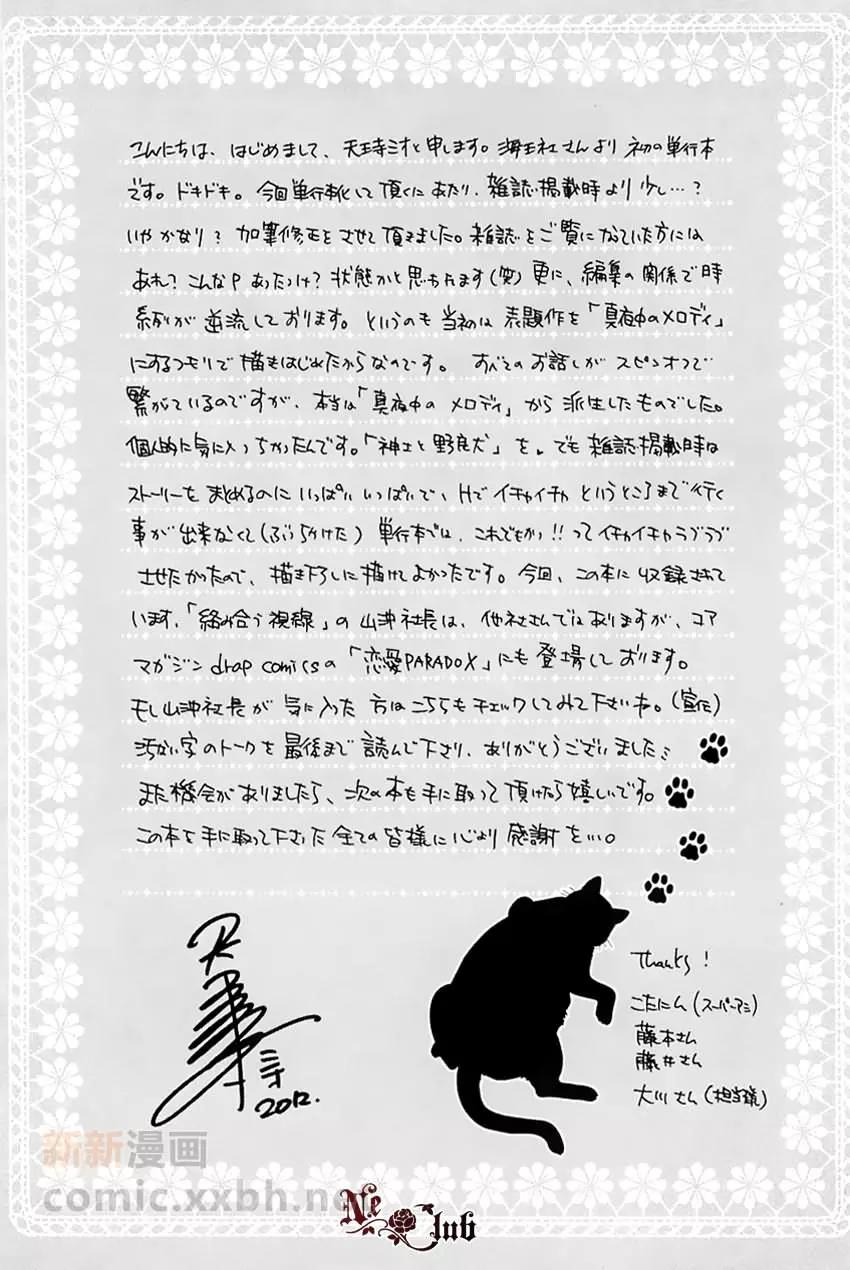 こんにちは、はじめまして、天王寺ミオと申します。海王社さんより初の単行本
です。ドキドキ。今回単行本化して頂くにあたり、雑誌掲載時より少し…？
いやかなり？加筆修正をさせて頂きました。雑誌をご覧になっていた方には
あれ？こんなPあったっけ？状態かと思われます(笑)更に、編集の関係で時
系列が逆流しております。というのも当初は表題作を「真夜中のメロディ」
にするつもりで描きはじめたからなのです。すべてのお話しがスピンオフで
繋がているのですが、本当は「真夜中のメロディ」から派生したものでした。
個人的に気に入っちゃったんです。「紳士と野良犬」を。でも雑誌掲載時は
ストーリーをまとめるのにいっぱいいっぱいで、Hでイチャイチャというところまで行く
事が出来なくて(ぶっちゃけた)単行本では、これでもかっ!!ってイチャイチャラブラブ
させたかったので、描き下しに描けてよかったです。今回、この本に収録されて
います、「絡み合う視線」の山沖社長は、他社さんではありますが、コア
マガジンdrap comicsの「恋愛PARADOX」にも登場しております。
もし山沖社長が気に入った方はこちらもチェックしてみて下さいね。(宣伝)
汚い字のトークを最後まで読んで下さり、ありがとうございました
また機会がありましたら、次の本も手に取って頂けたら嬉しいです。
この本を手に取って下さった全ての皆様に心より感謝を…。
ミオ
2012.
Thanks!
こたにん(スーパーアシ)
藤本さん
藤井さん
大川さん(担当様)
新新漫画
comic.xxbh.ne
Ne Club